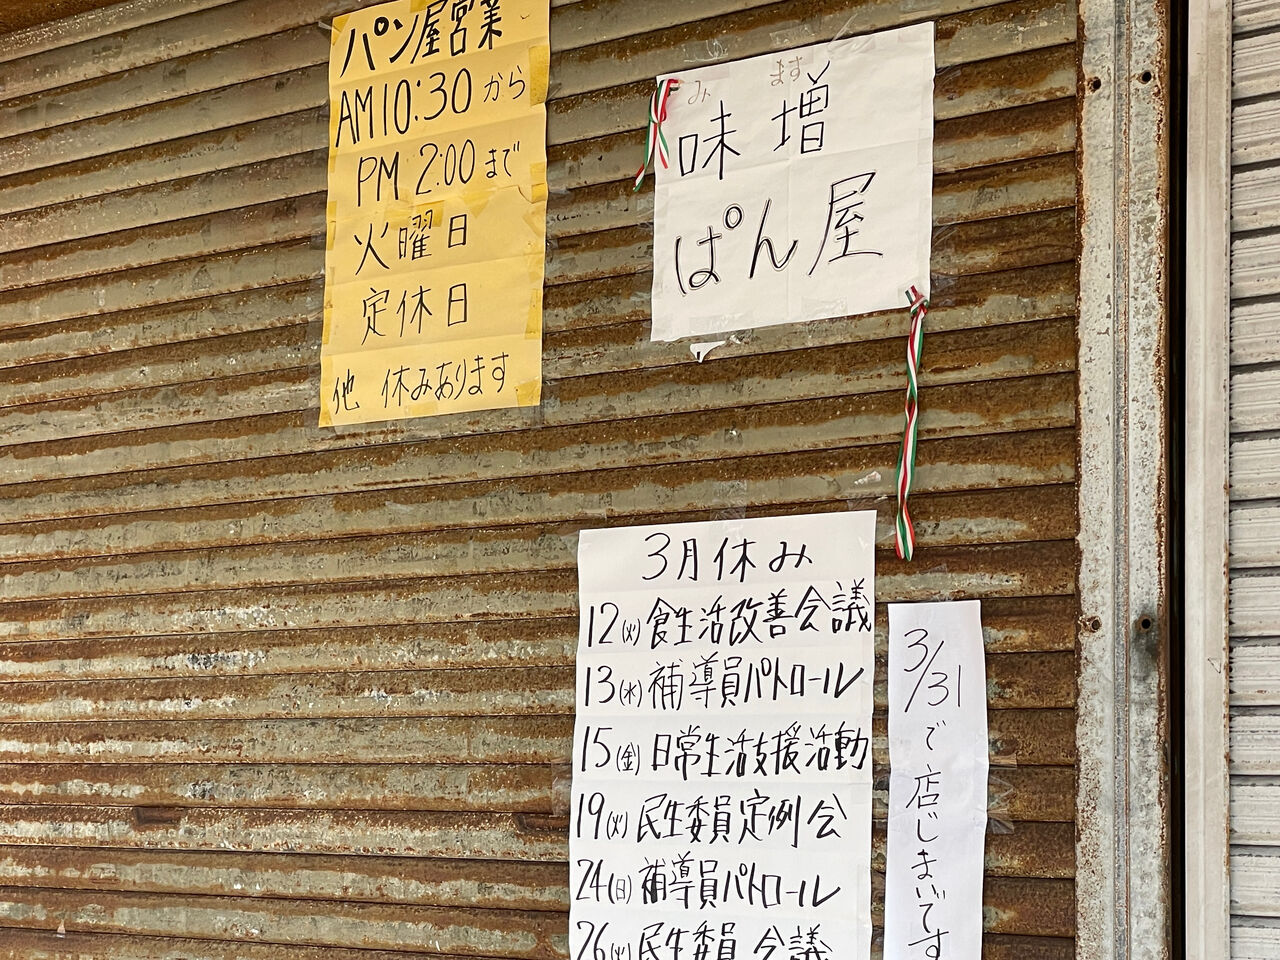 パン屋営業
AM10:30から
PM 2:00まで
火曜日
定休日
他 休みあります
み ます
味増
ぱん屋
3月休み
12(火)食生活改善会議
13(水)補導員パトロール
15(金)日常生活支援活動
19(火)民生委員定例会
24(日)補導員パトロール
26(火)民生委員会議
3/31で店じまいです